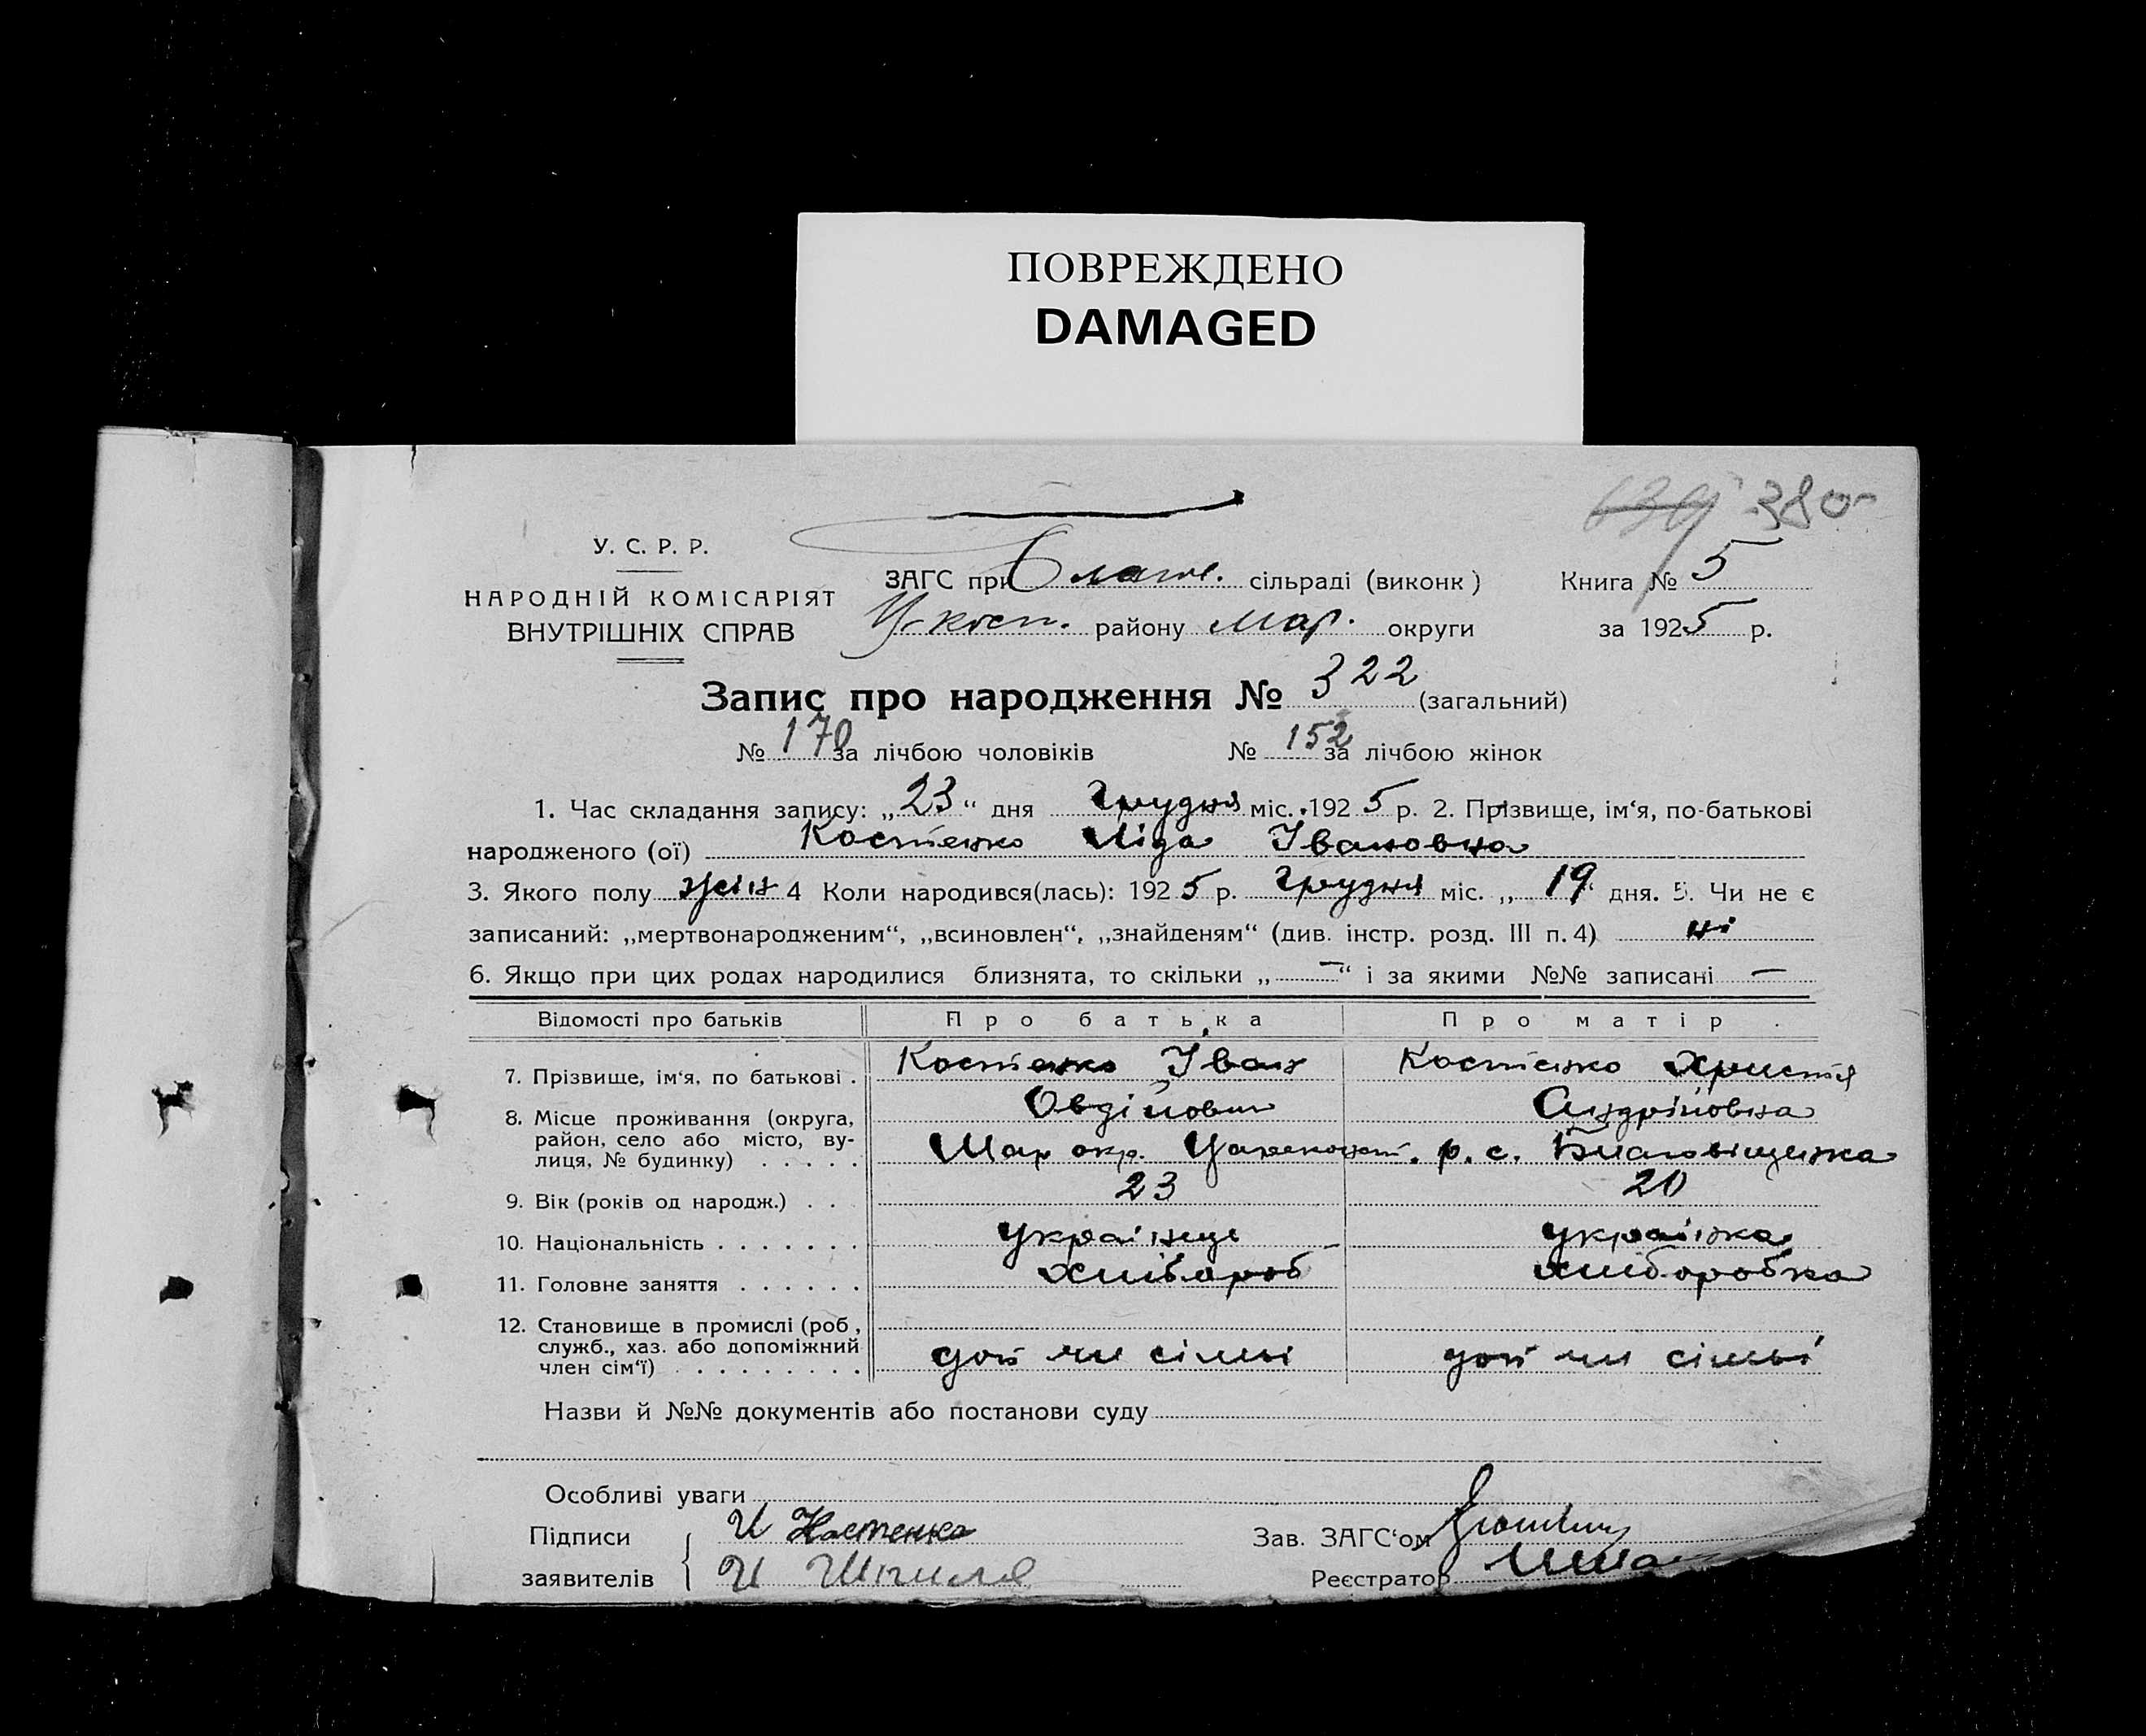 ПОВРЕЖДЕНО
DAMAGED
639 380
У. С. Р. Р.
НАРОДНІЙ КОМІСАРІЯТ
ВНУТРІШНІХ СПРАВ
ЗАГС при Благов. сільраді (виконк )
Ц-конст. району Мар. округи
Книга № 5
за 1925 р.
Запис про народження № 322 (загальний)
№ 170 за лічбою чоловіків № 152 за лічбою жінок
1. Час складання запису: „23“ дня Грудня міс. 1925 р. 2. Прізвище, ім‘я, по-батькові
народженого (ої) Костенко Ліда Івановна
3. Якого полу жін 4 Коли народився(лась): 1925 р. Грудня міс. „19“ дня. 5. Чи не є
записаний: „мертвонародженим“, „всиновлен“, „знайденям“ (див. інстр. розд. III п. 4) ні
6. Якщо при цих родах народилися близнята, то скільки „—“ і за якими №№ записані —
Відомості про батьків Про батька Про матір
7. Прізвище, ім‘я, по батькові . Костенко Іван Костенко Христя
Овдійович Андріїовна
8. Місце проживання (округа,
район, село або місто, ву-
лиця, № будинку) . . . . . Мар окр. Цареконст. р. с. Благовіщенка
9. Вік (років од народж.) . . . 23 20
10. Національність . . . . . . . українць українка
11. Головне заняття . . . . . . хлібороб хліборобка
12. Становище в промислі (роб ,
служб., хаз. або допоміжний
член сім‘ї) . . . . . . . . . доп чл сімьі доп чл сімьі
Назви й №№ документів або постанови суду
Особливі уваги
Підписи И Костенко Зав. ЗАГС‘ом
заявителів И Реєстратор